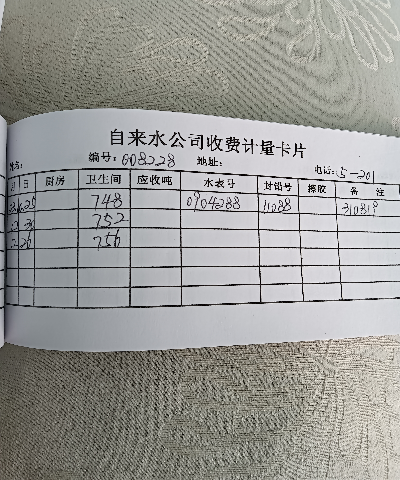 自来水公司收费计量卡片
编号:008228 地址: 电话:5-201
月 日 厨房 卫生间 应收吨 水表号 封铅号 橡胶 备 注
748 0904288 11088 310819
752
2 26 756